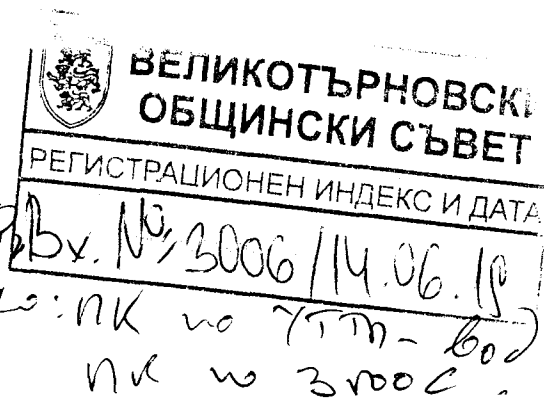 ВЕЛИКОТЪРНОВСКИ
ОБЩИНСКИ СЪВЕТ
РЕГИСТРАЦИОНЕН ИНДЕКС И ДАТА
Вх. № 3006/14.06.
ПК по УТТП - вод
ПК по